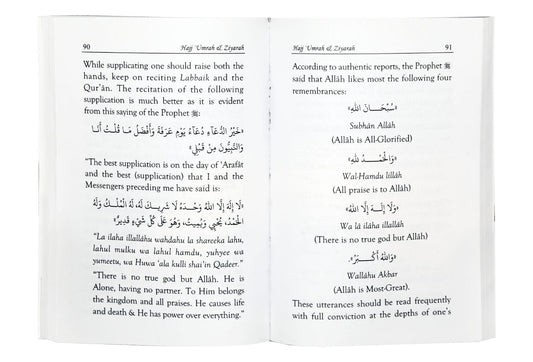 90
Hajj ʻUmrah & Ziyarah
While supplicating one should raise both the
hands, keep on reciting Labbaik and the
Qur'ân. The recitation of the following
supplication is much better as it is evident
from this saying of the Prophet ﷺ:
«خَيْرُ الدُّعَآءِ دُعَآءُ يَوْمِ عَرَفَةَ وَأَفْضَلُ مَا قُلْتُ أَنَا
وَالنَّبِيُّونَ مِنْ قَبْلِي»
"The best supplication is on the day of 'Arafât
and the best (supplication) that I and the
Messengers preceding me have said is:
«لَا إِلَهَ إِلَّا اللهُ وَحْدَهُ لَا شَرِيكَ لَهُ، لَهُ الْمُلْكُ وَلَهُ
الْحَمْدُ، يُحْيِي وَيُمِيتُ، وَهُوَ عَلَى كُلِّ شَيْءٍ قَدِيرٌ»
"La ilaha illallahu wahdahu la shareeka lahu,
lahul mulku wa lahul hamdu, yuhyee wa
yumeetu, wa Huwa 'ala kulli shai'in Qadeer."
"There is no true god but Allâh. He is
Alone, having no partner. To Him belongs
the kingdom and all praises. He causes life
and death & He has power over everything."
Hajj ʻUmrah & Ziyarah
91
According to authentic reports, the Prophet ﷺ
said that Allâh likes most the following four
remembrances:
«سُبْحَانَ اللهِ»
Subhân Allâh
(Allâh is All-Glorified)
«وَالْحَمْدُ لِلَّهِ»
Wal-Hamdu lillâh
(All praise is to Allâh)
«وَلَا إِلَهَ إِلَّا اللهُ»
Wa lâ ilâha illallâh
(There is no true god but Allâh)
«وَاللهُ أَكْبَرُ»
Wallâhu Akbar
(Allâh is Most-Great).
These utterances should be read frequently
with full conviction at the depths of one's